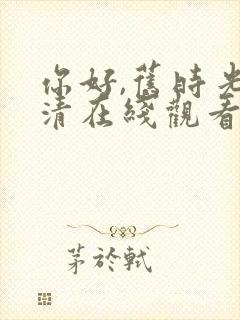 你好,舊時光
清在綫觀看
茅於軾